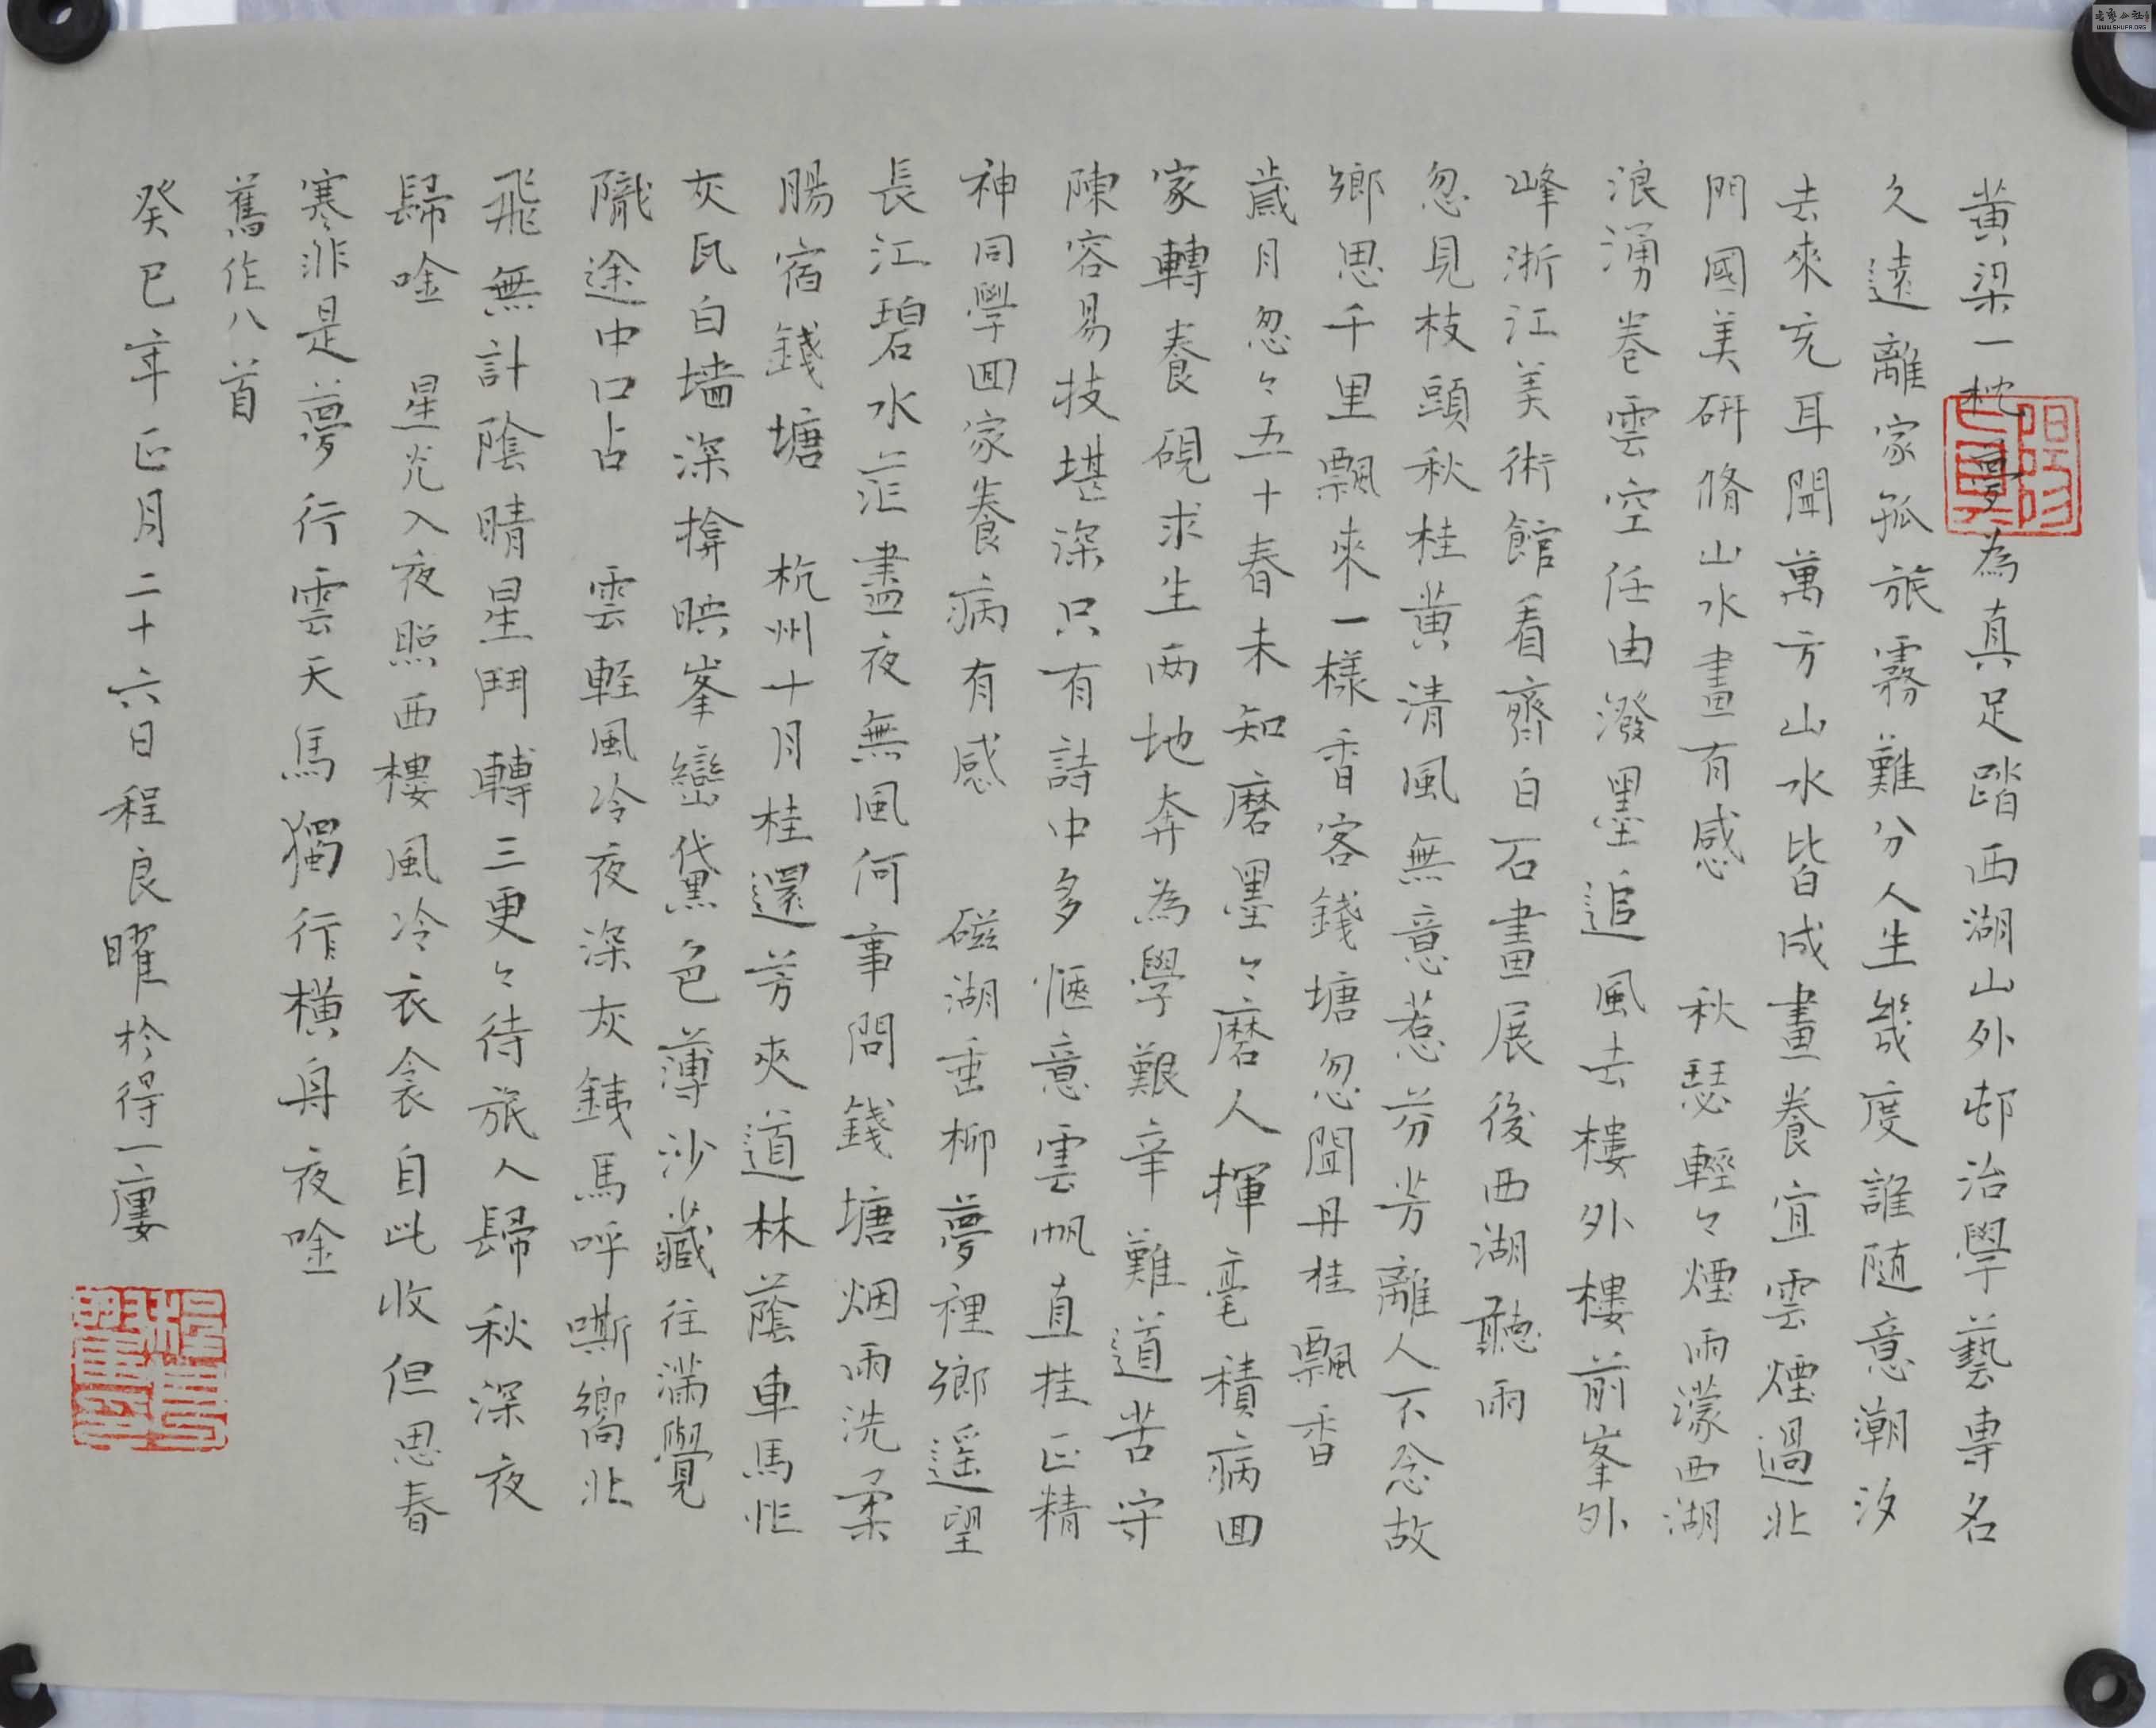 黄梁一枕夢為真足踏西湖山外邨治學藝專名
久遠離家孤旅霧難分人生幾度誰隨意潮汐
去來充耳聞萬方山水皆成畫養宜雲煙過北
門國美研脩山水畫有感 秋瑟輕々煙雨濛西湖
浪湧卷雲空任由潑墨追風去樓外樓前峯外
峰浙江美術館看齊白石畫展後西湖聽雨
忽見枝頭秋桂黄清風無意惹芬芳離人不念故
鄉思千里飄來一樣香客錢塘忽聞丹桂飄香
歲月忽々五十春未知磨墨々磨人揮毫積病回
家轉養硯求生両地奔為學艱辛難道苦守
陳容易技堪深只有詩中多愜意雲帆直挂正精
神同學回家養病有感 磁湖垂柳夢裡鄉遥望
長江碧水茫盡夜無風何事問錢塘烟雨洗柔
腸宿錢塘 杭州十月桂還芳夾道林蔭車馬忙
灰瓦白墻深揜映峯巒黛色薄沙藏往滿覺
隴途中口占 雲輊風冷夜深灰銕馬呼嘶嚮北
飛無計陰晴星鬥轉三更々待旅人歸秋深夜
歸唫 星光入夜照西樓風冷衣衾自此收但思春
寒非是夢行雲天馬獨行横舟夜唫
舊作八首
癸巳年正月二十六日程良曜於得一廔
WWW.SHUFA.ORG